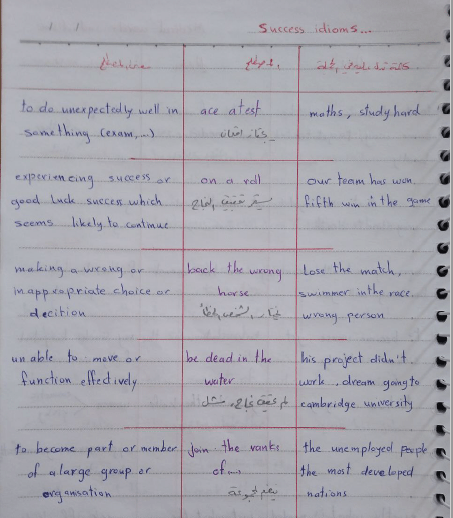 Success idioms...
to do unexpectedly well in ace a test maths, study hard
something (exam,...)
experiencing success or on a roll our team has won
good luck success which fifth win in the game
seems likely to continue
making a wrong or back the wrong Lose the match,
inappropriate choice or horse swimmer in the race
decition wrong person
unable to move or be dead in the his project didn't
function effectively water work, dream going to
cambridge university
to become part or member join the ranks the unemployed people
of a large group or of... the most developed
organisation nations